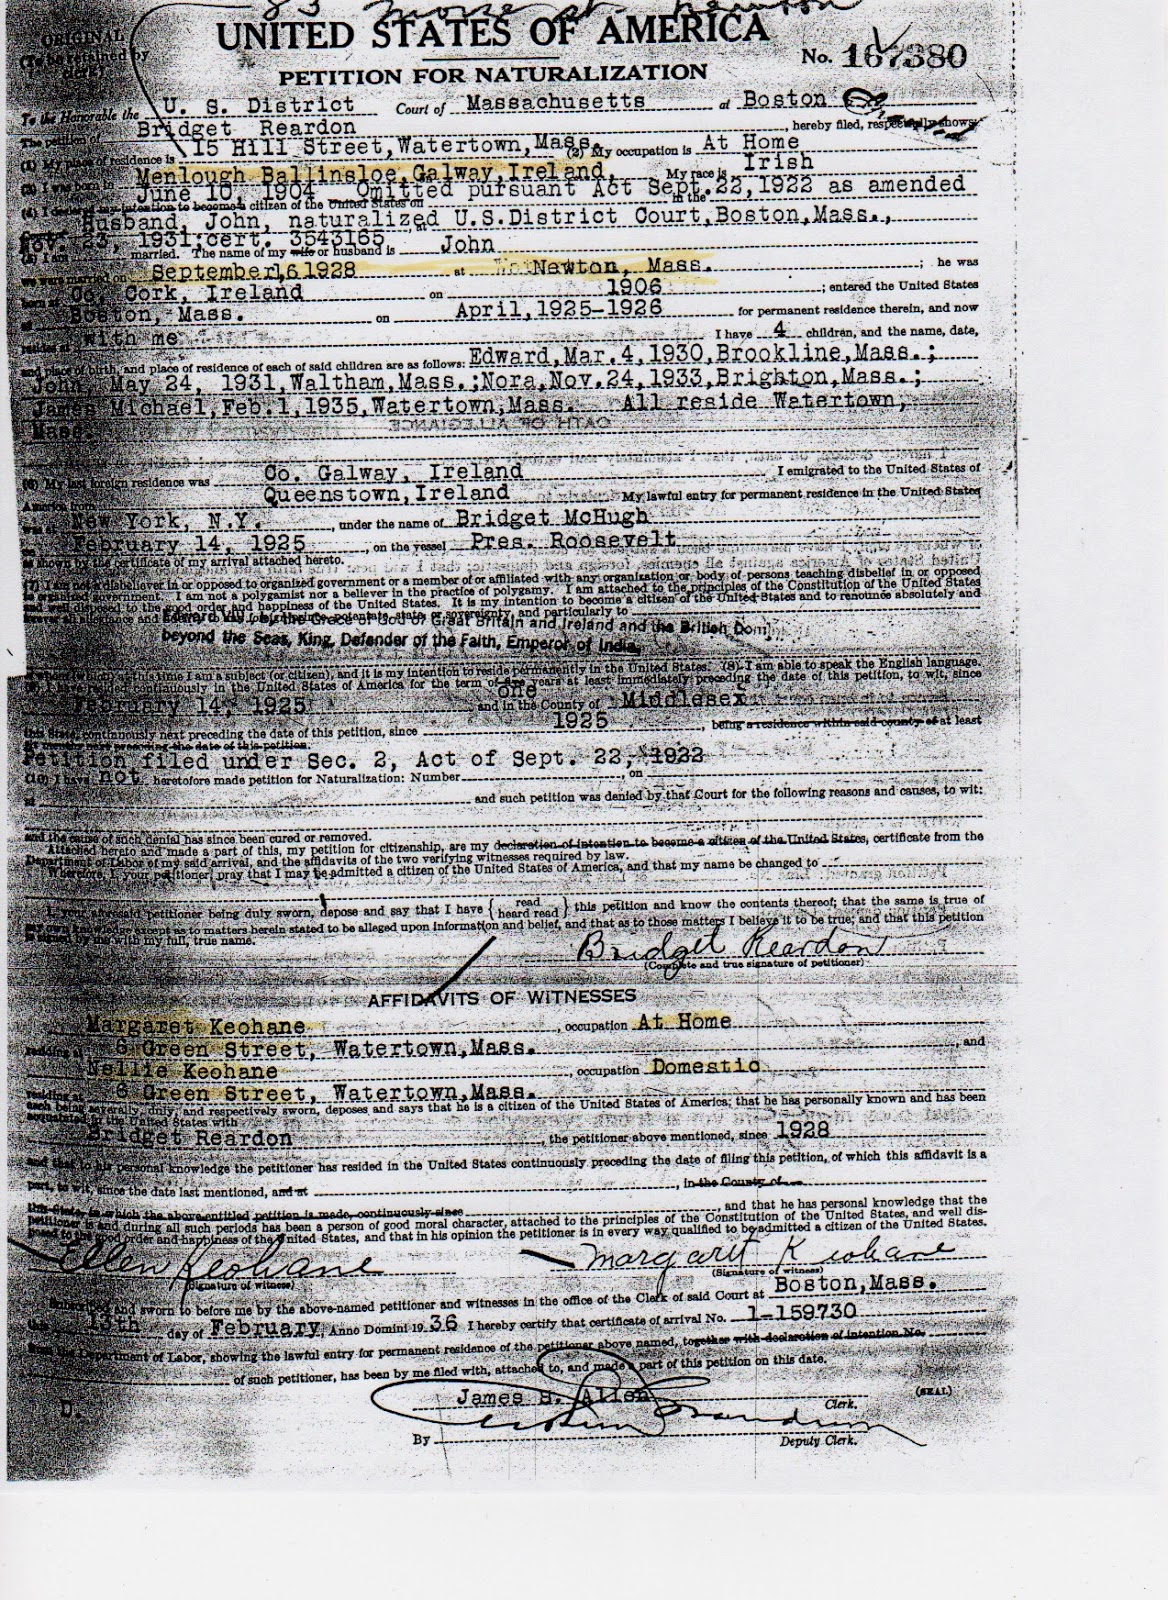 83 Morse st. Newton
ORIGINAL
(To be retained by
clerk)
UNITED STATES OF AMERICA
PETITION FOR NATURALIZATION
No. 167380
To the Honorable the U. S. District Court of Massachusetts at Boston
The petition of Bridget Reardon, hereby filed, respectfully shows:
(1) My place of residence is 15 Hill Street, Watertown, Mass. (2) My occupation is At Home
(3) I was born in Menlough Ballinsloe, Galway, Ireland, My race is Irish
June 10, 1904 Omitted pursuant Act Sept. 22, 1922 as amended
(4) I declared my intention to become a citizen of the United States on in the
Husband, John, naturalized U.S. District Court, Boston, Mass.,
Nov. 23, 1931; cert. 3543165
(5) I am married. The name of my wife or husband is John
we were married on September 16 1928 at Newton, Mass. ; he was
born at Co. Cork, Ireland on 1906 ; entered the United States
at Boston, Mass. on April, 1925-1926 for permanent residence therein, and now
resides at with me I have 4 children, and the name, date,
and place of birth, and place of residence of each of said children are as follows: Edward, Mar. 4, 1930, Brookline, Mass.;
John, May 24, 1931, Waltham, Mass.; Nora, Nov. 24, 1933, Brighton, Mass.;
James Michael, Feb. 1, 1935, Watertown, Mass. All reside Watertown,
Mass.
OATH OF ALLEGIANCE
(6) My last foreign residence was Co. Galway, Ireland I emigrated to the United States of
America from Queenstown, Ireland My lawful entry for permanent residence in the United States
was at New York, N.Y. , under the name of Bridget McHugh
on February 14, 1925 , on the vessel Pres. Roosevelt
as shown by the certificate of my arrival attached hereto.
(7) I am not a disbeliever in or opposed to organized government or a member of or affiliated with any organization or body of persons teaching disbelief in or opposed
to organized government. I am not a polygamist nor a believer in the practice of polygamy. I am attached to the principles of the Constitution of the United States
and well disposed to the good order and happiness of the United States. It is my intention to become a citizen of the United States and to renounce absolutely and
forever all allegiance and fidelity to any foreign prince, potentate, state, or sovereignty, and particularly to
Edward VIII, by the Grace of God of Great Britain and Ireland and the British Dom
beyond the Seas, King, Defender of the Faith, Emperor of India,
of whom (which) at this time I am a subject (or citizen), and it is my intention to reside permanently in the United States. (8) I am able to speak the English language.
(9) I have resided continuously in the United States of America for the term of five one years at least immediately preceding the date of this petition, to wit, since
February 14, 1925 and in the County of Middlesex
this State, continuously next preceding the date of this petition, since 1925 , being a residence within said county of at least
six months next preceding the date of this petition.
Petition filed under Sec. 2, Act of Sept. 22, 1922
(10) I have not heretofore made petition for Naturalization: Number , on
at and such petition was denied by that Court for the following reasons and causes, to wit:
and the cause of such denial has since been cured or removed.
Attached hereto and made a part of this, my petition for citizenship, are my declaration of intention to become a citizen of the United States, certificate from the
Department of Labor of my said arrival, and the affidavits of the two verifying witnesses required by law.
Wherefore, I, your petitioner, pray that I may be admitted a citizen of the United States of America, and that my name be changed to
I, your aforesaid petitioner being duly sworn, depose and say that I have { read heard read } this petition and know the contents thereof; that the same is true of
my own knowledge except as to matters herein stated to be alleged upon information and belief, and that as to those matters I believe it to be true; and that this petition
is signed by me with my full, true name.
Bridget Reardon
(Complete and true signature of petitioner)
AFFIDAVITS OF WITNESSES
Margaret Keohane , occupation At Home
residing at 6 Green Street, Watertown, Mass. , and
Nellie Keohane , occupation Domestic
residing at 6 Green Street, Watertown, Mass.
each being severally, duly, and respectively sworn, deposes and says that he is a citizen of the United States of America; that he has personally known and has been
acquainted in the United States with
Bridget Reardon , the petitioner above mentioned, since 1928
and that to his personal knowledge the petitioner has resided in the United States continuously preceding the date of filing this petition, of which this affidavit is a
part, to wit, since the date last mentioned, and at , in the County of
this State, in which the above-entitled petition is made, continuously since , and that he has personal knowledge that the
petitioner is and during all such periods has been a person of good moral character, attached to the principles of the Constitution of the United States, and well dis-
posed to the good order and happiness of the United States, and that in his opinion the petitioner is in every way qualified to be admitted a citizen of the United States.
Ellen Keohane Margaret Keohane
(Signature of witness) (Signature of witness)
Subscribed and sworn to before me by the above-named petitioner and witnesses in the office of the Clerk of said Court at Boston, Mass.
this 13th day of February, Anno Domini 1936 I hereby certify that certificate of arrival No. 1-159730
from the Department of Labor, showing the lawful entry for permanent residence of the petitioner above named, together with declaration of intention No.
of such petitioner, has been by me filed with, attached to, and made a part of this petition on this date.
James S. Allen
Clerk.
(SEAL)
D.
By
Deputy Clerk.